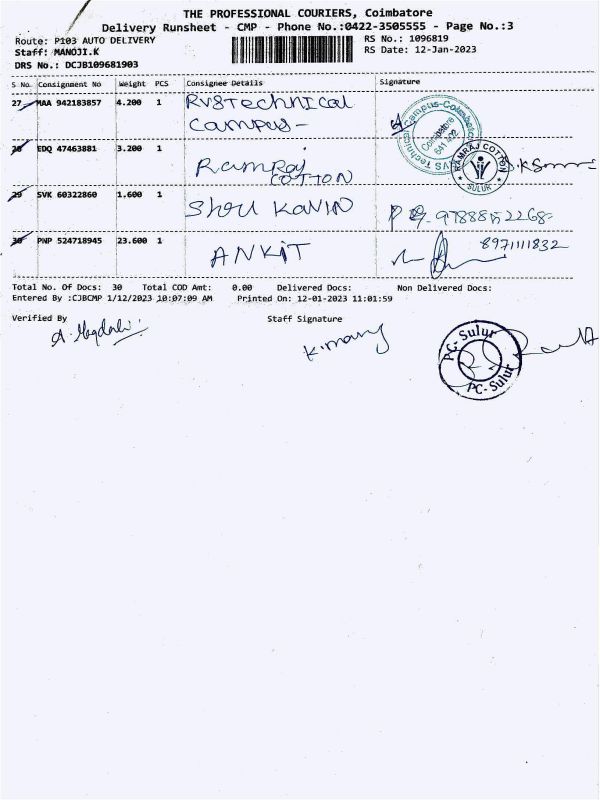 THE PROFESSIONAL COURIERS, Coimbatore
Delivery Runsheet - CMP - Phone No.:0422-3505555 - Page No.:3
Route: P103 AUTO DELIVERY
RS No.: 1096819
Staff: MANOJI.K
RS Date: 12-Jan-2023
DRS No.: DCJB109681903
S No. Consignment No Weight PCS Consignee Details Signature
27 MAA 942183857 4.200 1 RVS Technical
Campus-
28 EDQ 47463881 3.200 1 Ramraj
COTTON
29 SVK 60322860 1.600 1 Shri KAVIN
30 PNP 524718945 23.600 1 ANKIT
8971111832
RAMRAJ COTTON
SULUR
Total No. Of Docs: 30 Total COD Amt: 0.00 Delivered Docs: Non Delivered Docs:
Entered By :CJBCMP 1/12/2023 10:07:09 AM Printed On: 12-01-2023 11:01:59
Verified By Staff Signature
PC- Sulur
PC- Sulur